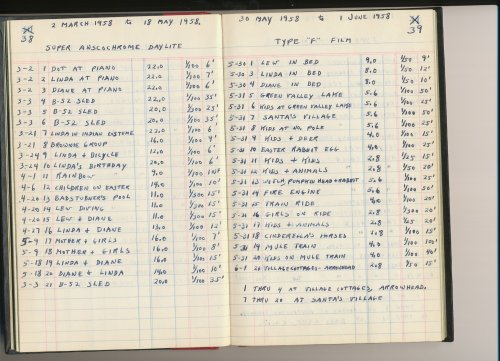 2 MARCH 1958 to 18 MAY 1958.
38
SUPER ANSCOCHROME DAYLITE
3-2 1 DOT AT PIANO 22.0 1/100 6'
3-2 2 LINDA AT PIANO 22.0 1/100 7'
3-2 3 DIANE AT PIANO 22.0 1/100 6'
3-3 4 B-52 SLED 22.0 1/100 35'
3-3 5 B-52 SLED 20.0 1/300 25'
3-3 6 B-52 SLED 20.0 1/300 35'
3-21 7 LINDA IN INDIAN COSTUME 22.0 1/100 6'
3-21 8 BROWNIE GROUP 16.0 1/100 9'
3-24 9 LINDA + BICYCLE 12.0 1/100 6'
3-24 10 LINDA'S BIRTHDAY 20.0 1/100 6'
4-1 11 RAINBOW 9.0 1/100 INF
4-6 12 CHILDREN ON EASTER 14.0 1/100 10'
4-20 13 POOL 11.0 1/300 35'
4-20 14 LEW DIVING 11.0 1/300 15'
4-20 15 LEW + DIANE 11.0 1/300 15'
4-27 16 LINDA + DIANE 13.0 1/100 12'
5-9 17 MOTHER + GIRLS 16.0 1/100 7'
5-9 18 MOTHER + GIRLS 16.0 1/100 8'
5-18 19 LINDA + DIANE 16.0 1/300 15'
5-18 20 DIANE + LINDA 14.0 1/300 10'
3-3 21 B-52 SLED 20.0 1/300 35'
30 MAY 1958 to 1 JUNE 1958
39
TYPE "F" FILM
5-30 1 LEW IN BED 9.0 1/50 9'
5-30 3 LINDA IN BED 8.0 1/50 12'
5-30 4 DIANE IN BED 8.0 1/50 10'
5-31 5 GREEN VALLEY LAKE 5.6 1/100 50'
5-31 6 KIDS AT GREEN VALLEY LAKE 5.6 1/100 25'
5-31 7 SANTA'S VILLAGE 5.6 1/100
5-31 8 KIDS AT NO. POLE 5.6 1/100 25'
5-31 9 KIDS + DEER 4.0 1/100 15'
5-31 10 EASTER RABBIT EGG 4.0 1/100
5-31 11 KIDS + KIDS 2.8 1/25 15'
5-31 12 KIDS + ANIMALS 2.8 1/50
5-31 13 PUMPKIN HEAD + RABBIT 5.6 1/100 25'
5-31 14 FIRE ENGINE 5.6 1/50
5-31 15 TRAIN RIDE 4.0 1/100 20'
5-31 16 GIRLS ON RIDE 2.8 1/300 20'
5-31 17 KIDS + ANIMALS 2.8 1/25 12'
5-31 18 CINDERELLA'S HORSES 2.8 1/50 20'
5-31 19 MULE TRAIN 4.0 1/100
5-31 20 KIDS ON MULE TRAIN 4.0 1/100 40'
6-1 VILLAGE COTTAGES - ARROWHEAD 2.8 1/50 15'
1 THRU 4 AT VILLAGE COTTAGES, ARROWHEAD,
7 THRU 20 AT SANTA'S VILLAGE